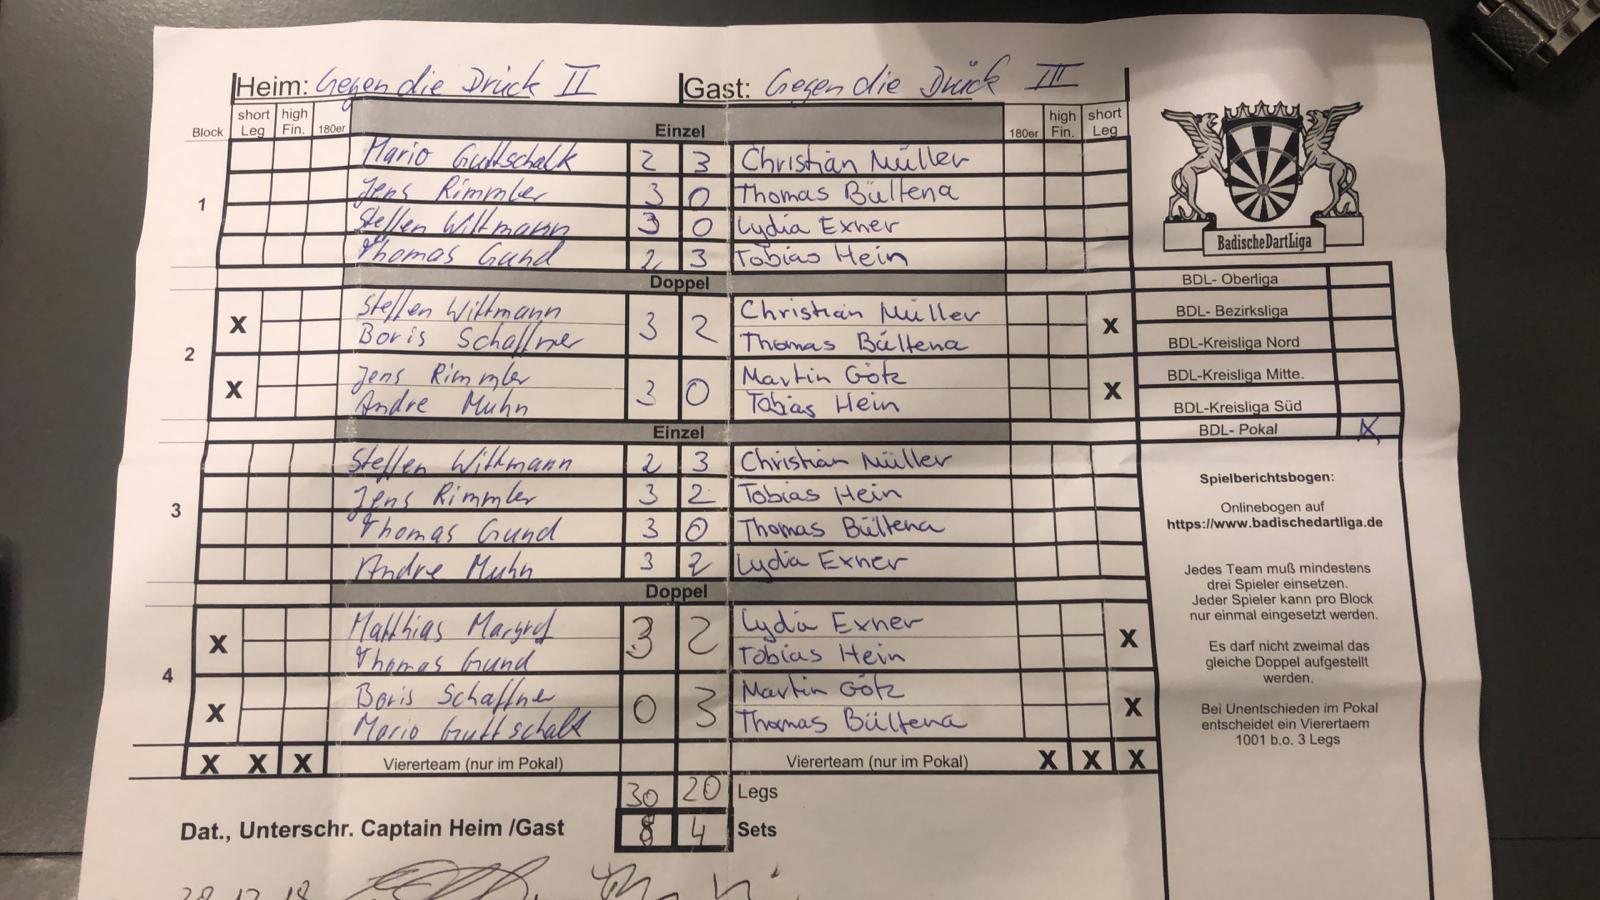 Heim: Gegen die Drück II Gast: Gegen die Drück III
Block short Leg high Fin. 180er Einzel 180er high Fin. short Leg
1
Mario Guttschalk 2 3 Christian Müller
Jens Rimmler 3 0 Thomas Bültena
Steffen Wittmann 3 0 Lydia Exner
Thomas Gund 2 3 Tobias Hein
Doppel
2
X Steffen Wittmann 3 2 Christian Müller X
Boris Schaffner Thomas Bültena
X Jens Rimmler 3 0 Martin Götz X
Andre Muhn Tobias Hein
Einzel
3
Steffen Wittmann 2 3 Christian Müller
Jens Rimmler 3 2 Tobias Hein
Thomas Gund 3 0 Thomas Bültena
Andre Muhn 3 2 Lydia Exner
Doppel
4
X Matthias 3 2 Lydia Exner X
Thomas Gund Tobias Hein
X Boris Schaffner 0 3 Martin Götz X
Mario Guttschalk Thomas Bültena
X X X Viererteam (nur im Pokal) Viererteam (nur im Pokal) X X X
30 20 Legs
Dat., Unterschr. Captain Heim /Gast 8 4 Sets
BadischeDartLiga
BDL- Oberliga
BDL- Bezirksliga
BDL-Kreisliga Nord
BDL-Kreisliga Mitte.
BDL-Kreisliga Süd
BDL- Pokal X
Spielberichtsbogen:
Onlinebogen auf
https://www.badischedartliga.de
Jedes Team muß mindestens
drei Spieler einsetzen.
Jeder Spieler kann pro Block
nur einmal eingesetzt werden.
Es darf nicht zweimal das
gleiche Doppel aufgestellt
werden.
Bei Unentschieden im Pokal
entscheidet ein Vierertaem
1001 b.o. 3 Legs